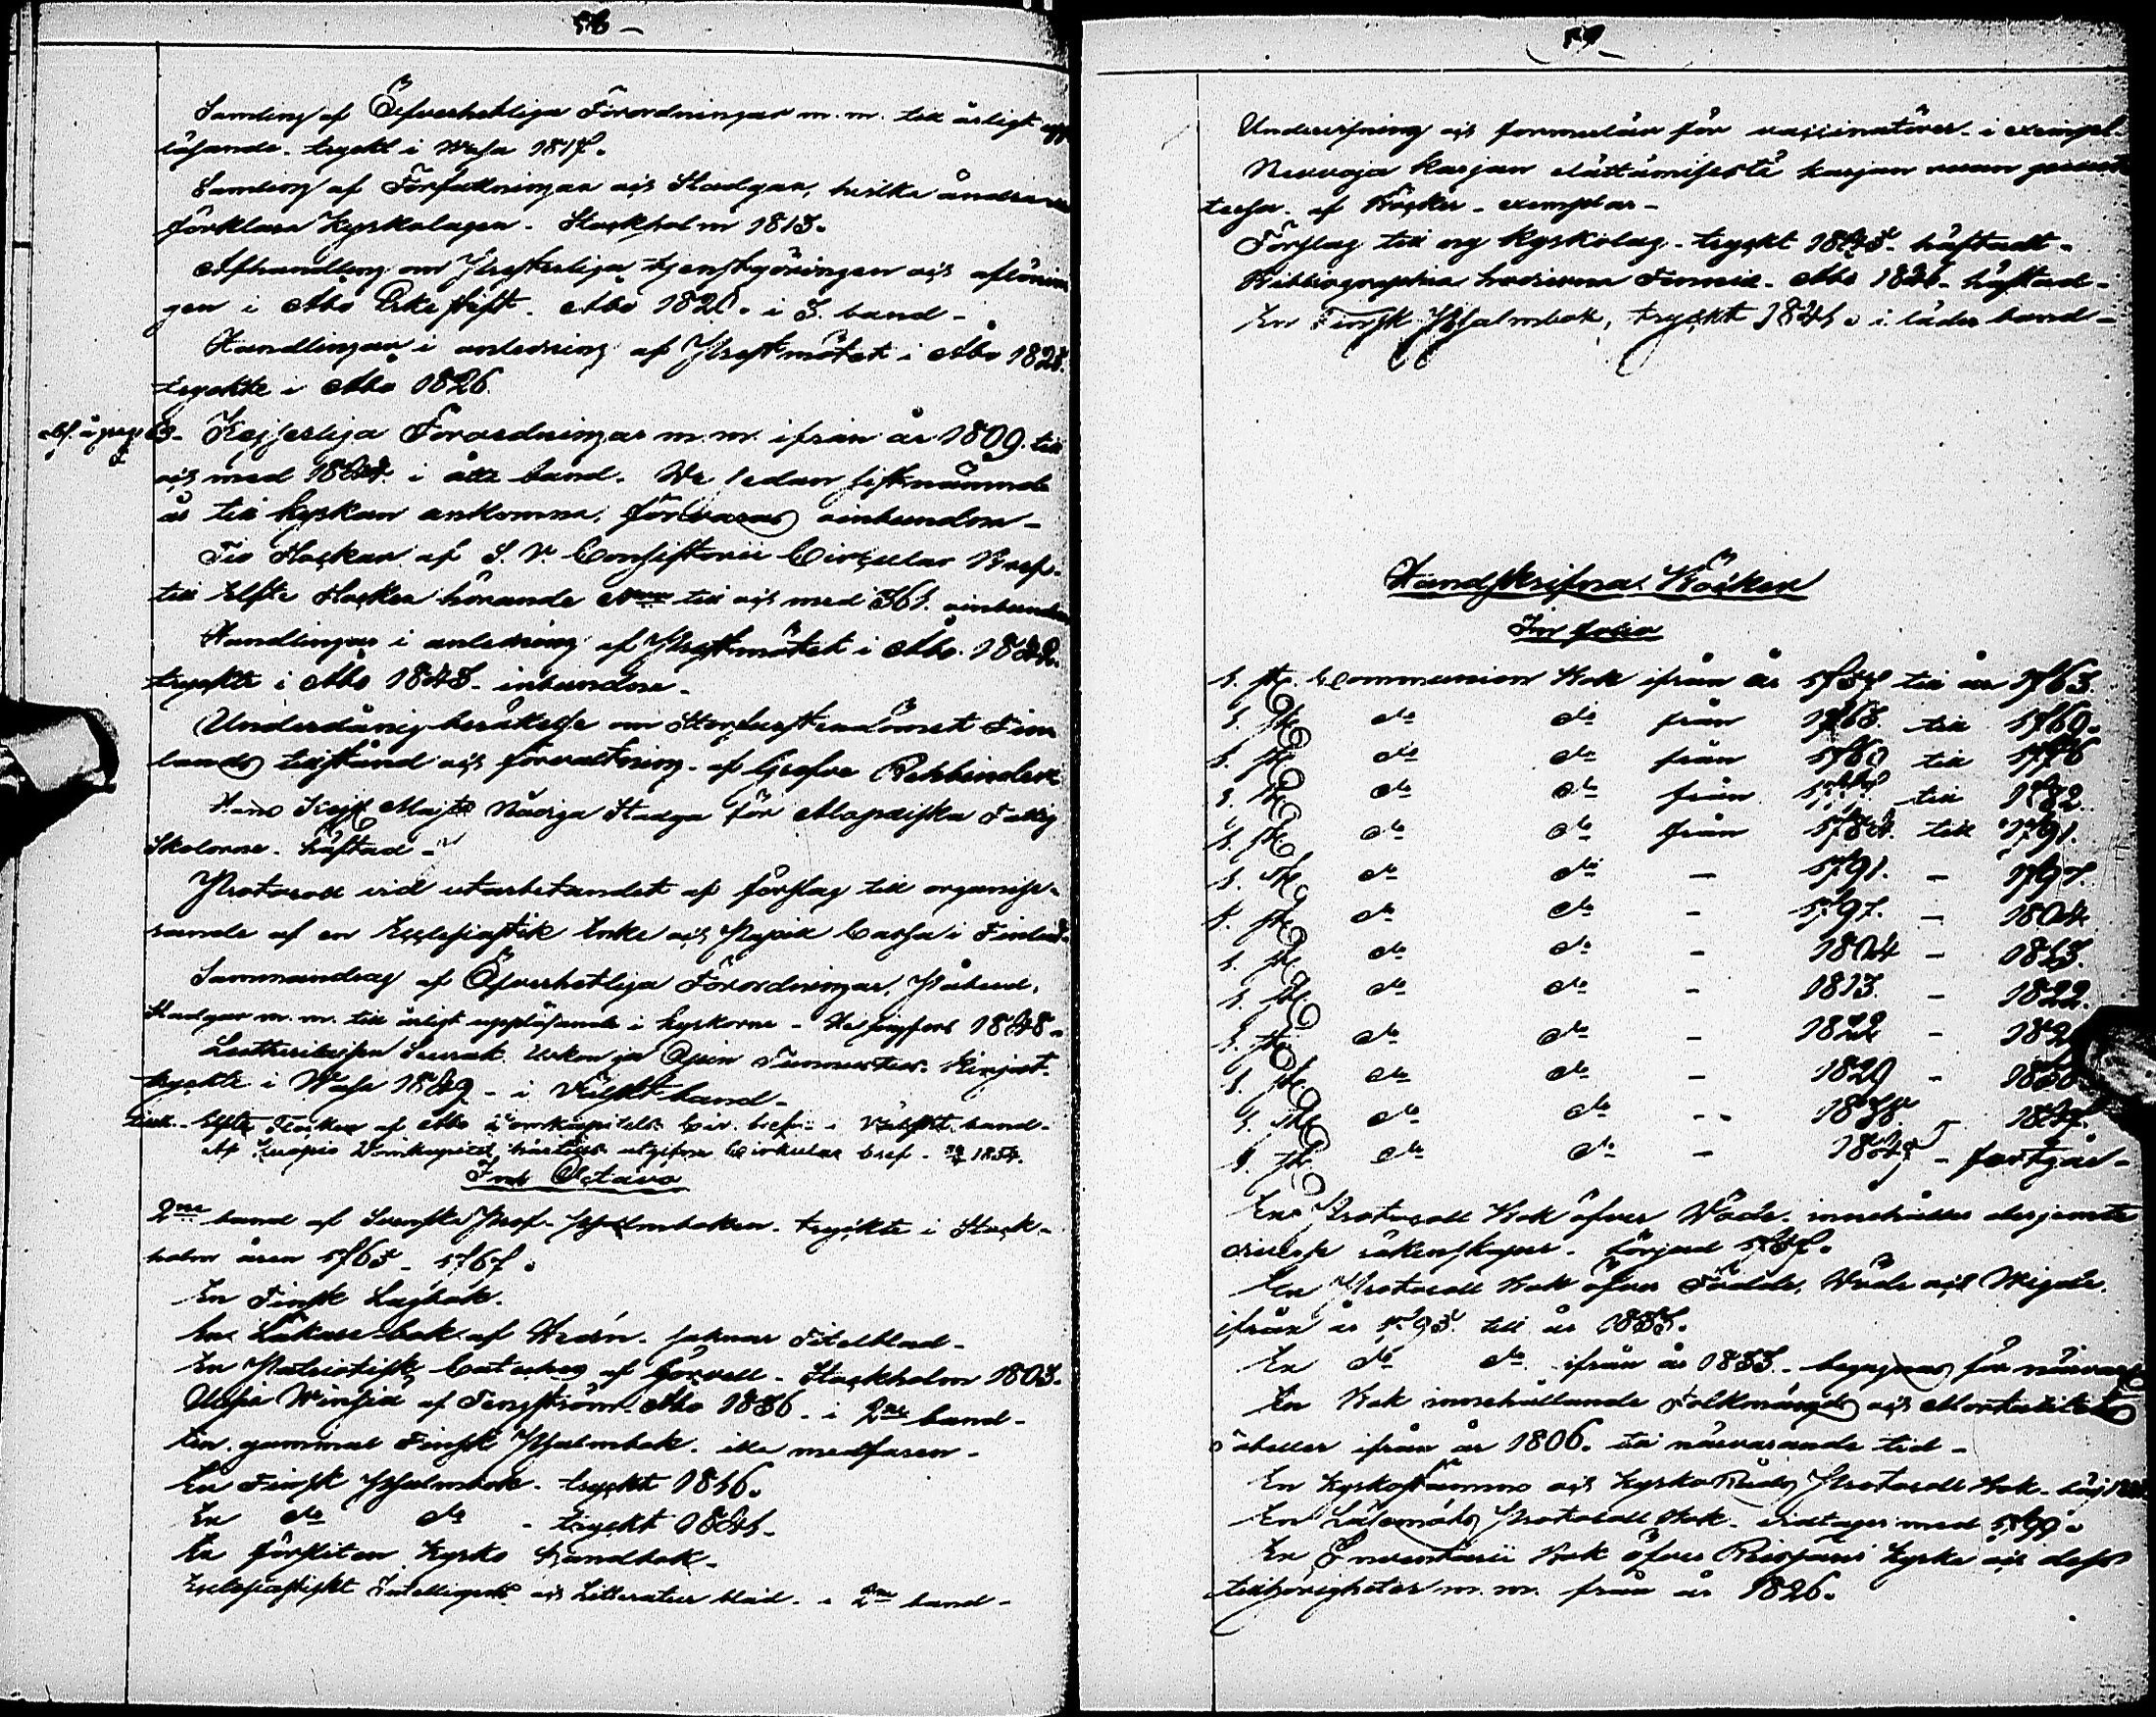 58 –
Samling af Öfverhetliga Förordningar m. m. till årligt upp
läsande. tryckt i Wasa 1817.
Samling af Författningar och Stadgar, hvilka ändra
förklara Kyrkolagen. Stockholm 1813.
Afhandling om Presterliga tjenstgöringen och aflönin
gen i Åbo Erke Stift. Åbo 1820. i 3. band –
Handlingar i anledning af Prestmötet i Åbo 1825.
tryckte i Åbo 1826.
Kejserliga Förordningar m. m. ifrån år 1809. till
och med 1844. i åtta band. De sedan sistnämnde
år till kyrkan ankomna, förvaras oinbundne –
Tio Stycken af S. V. Consistorii Circulär Bref.
till Elfte Stycket hörande till och med 361. oinbundne
Handlingar i anledning af Prestmötet i Åbo. 1842.
tryckte i Åbo 1843. inbundne –
Underdånig berättelse om Storfurstendömet Fin
lands tillstånd och förvaltning. af Grefve Rehbinder
Hans Kejs. Majts Nådiga Stadga för Skolorne. häftad –
Protocoll vid utarbetandet af förslag till organise-
rande af en Ecclesiastik Enke och Pupill Cassa i Finland.
Sammandrag af Öfverhetliga Förordningar, Påbud,
Stadgar m. m. till årligt uppläsande i kyrkorne – Helsingfors 1848 –
Lutherilaisen Seurak. Uskon ja Opin Tunnustus. Kirjat.
tryckte i Wasa 1849 – i Wälskt band –
Elfte Stycket af Åbo Domkapitels Cir. bref – i Wälskt band –
Af Kuopio Domkapitel härtills utgifne Cirkulär bref – 1854.
In Octavo
2ne band af Svenska Prof. Psalmboken. tryckte i Stock-
holm åren 1765 – 1767.
En Finsk Lagbok.
En Läkare-bok af Hedén. saknar Titelblad –
En Patriotisk Cateches af Gjörwell – Stockholm 1803.
af Tengström. Åbo 1836 – i 2ne band –
En gammal Finsk Psalmbok. illa medfaren –
En Finsk Psalmbok. tryckt 1836.
En do do – tryckt 1841 –
En försliten Kyrko Handbok –
Ecclesiastikt Intelligens och Litteratur blad – i 2ne band –
59
Undervisning och formulär för vaccinatörer – i exempl.
Neuvoja karjan elättämisestä karjan
af Böcker – exemplar –
Förslag till ny kyrkolag – tryckt 1845 – häftadt –
Bibliographia hodierna Fennica – Åbo 1846 – häftad –
En Finsk Psalmbok, tryckt 1841. i läder band –
Handskrifna Böcker
In folio
1. st. Communion Bok ifrån år till år 1763.
1. st. do do från 1763. till 1769.
1. st. do do från till 1776
1. st. do do från till 1782.
1. st. do do från 1784. till 1791.
1. st. do do – 1791. – 1797.
1. st. do do – 1797. – 1804.
1. st. do do – 1804 – 1813.
1. st. do do – 1813. – 1822.
1. st. do do – 1822 – 182
1. st. do do – 1829 –
1. st. do do – 1838 – 1847.
1. st. do do – – fortgår –
En Protocoll Bok öfver Döde. innehåller derjemte
diverse räkenskaper – börjad
En Protocoll Bok öfver Födde, Döde och Wigde.
ifrån år 1793. till år 1833.
En do do ifrån år 1833. – begagnas för närvar
En Bok innehållande Folkmängds och Mortalitets
Tabeller ifrån år 1806. till närvarande tid –
En Kyrkostämmo och KyrkoRåds Protocoll Bok –
En Läsemöts Protocoll Bok – vidtager med 1799.
En Inventarii Bok öfver Reisjärvi Kyrka och dess
tillhörigheter m. m. från år 1826.